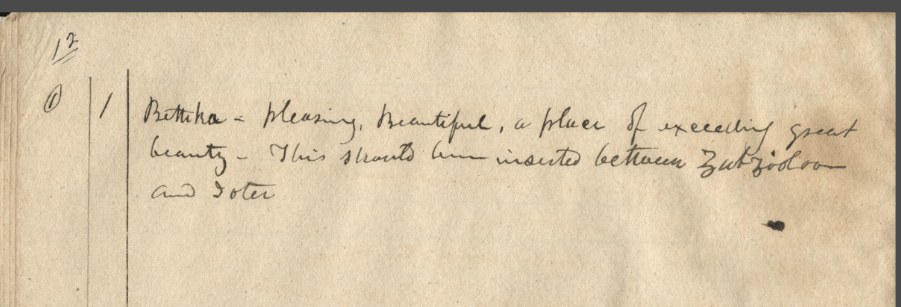 12
① 1 Bethka = pleasing, Beautiful, a place of exceeding great
beauty - This should been inserted between Zubzooloon
and Joter